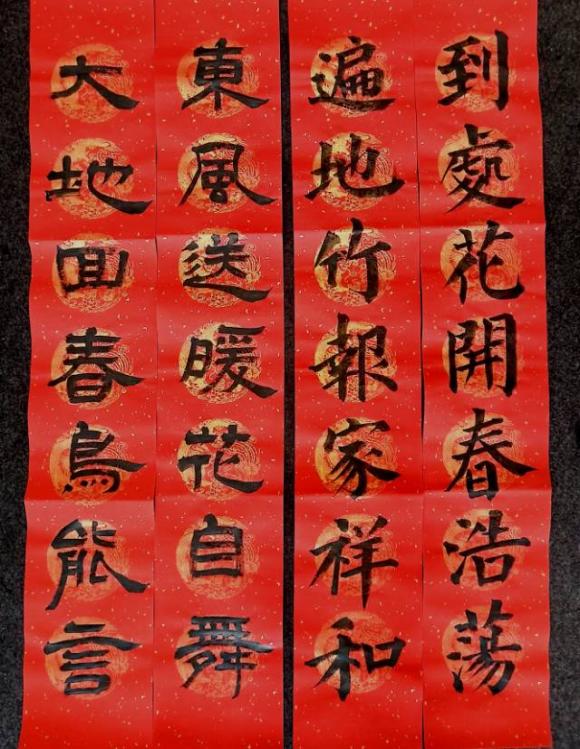 到處花開春浩蕩
遍地竹報家祥和
東風送暖花自舞
大地回春鳥能言